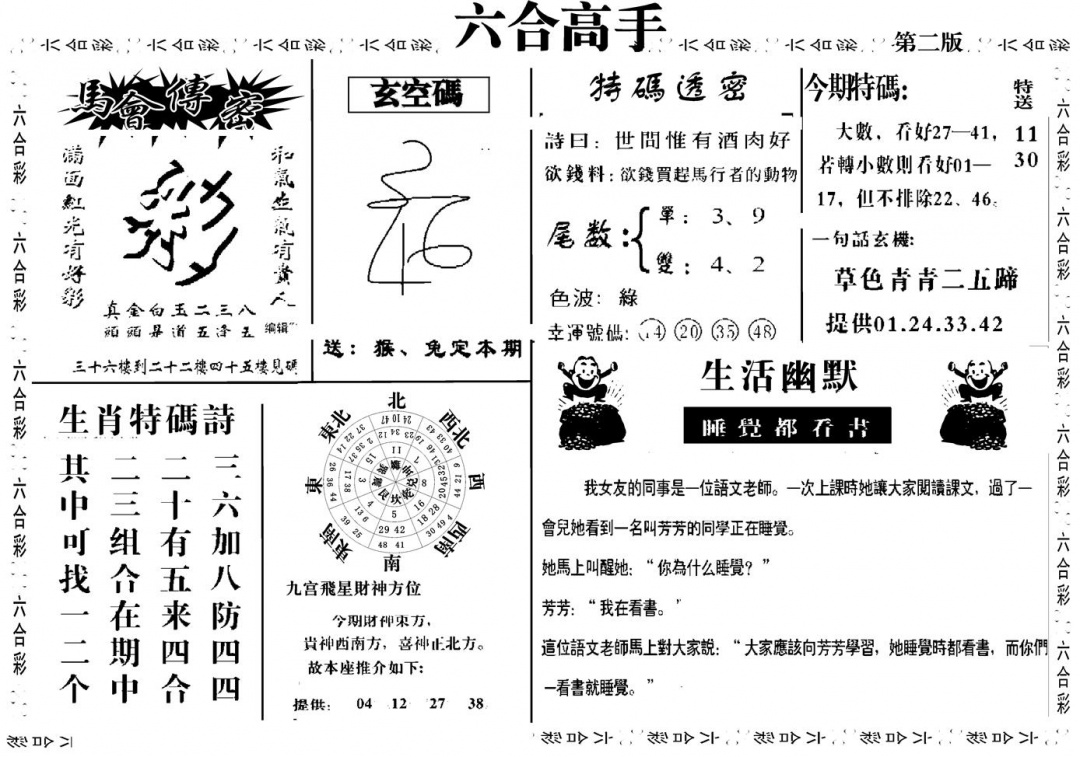 六合高手
第二版
馬會傳密
滿面紅光有好彩
彩
和氣生氣有貴人
真金白玉二三八
頭頭是道五逢五
编辑
三十六樓到二十二樓四十五樓見碼
玄空碼
送：猴、兔定本期
特碼透密
詩曰：世問惟有酒肉好
欲錢料：欲錢買趕馬行者的動物
尾数：
單：3、9
雙：4、2
色波：綠
幸運號碼：14 20 35 48
今期特碼：
特送
11
30
大數，看好27—41，
若轉小數則看好01—
17，但不排除22、46。
一句話玄機：
草色青青二五蹄
提供01.24.33.42
生肖特碼詩
三六加八防四四
二十有五来四合
二三组合在期中
其中可找一二个
北
西北
西
西南
南
東南
東
東北
九宫飛星財神方位
今期財神東方，
貴神西南方，喜神正北方。
故本座推介如下：
提供： 04 12 27 38
生活幽默
睡覺都看書
我女友的同事是一位語文老師。一次上課時她讓大家閱讀課文，過了一
會兒她看到一名叫芳芳的同學正在睡覺。
她馬上叫醒她：“你為什么睡覺？”
芳芳：“我在看書。”
這位語文老師馬上對大家說：“大家應該向芳芳學習，她睡覺時都看書，而你們
一看書就睡覺。”
六合彩